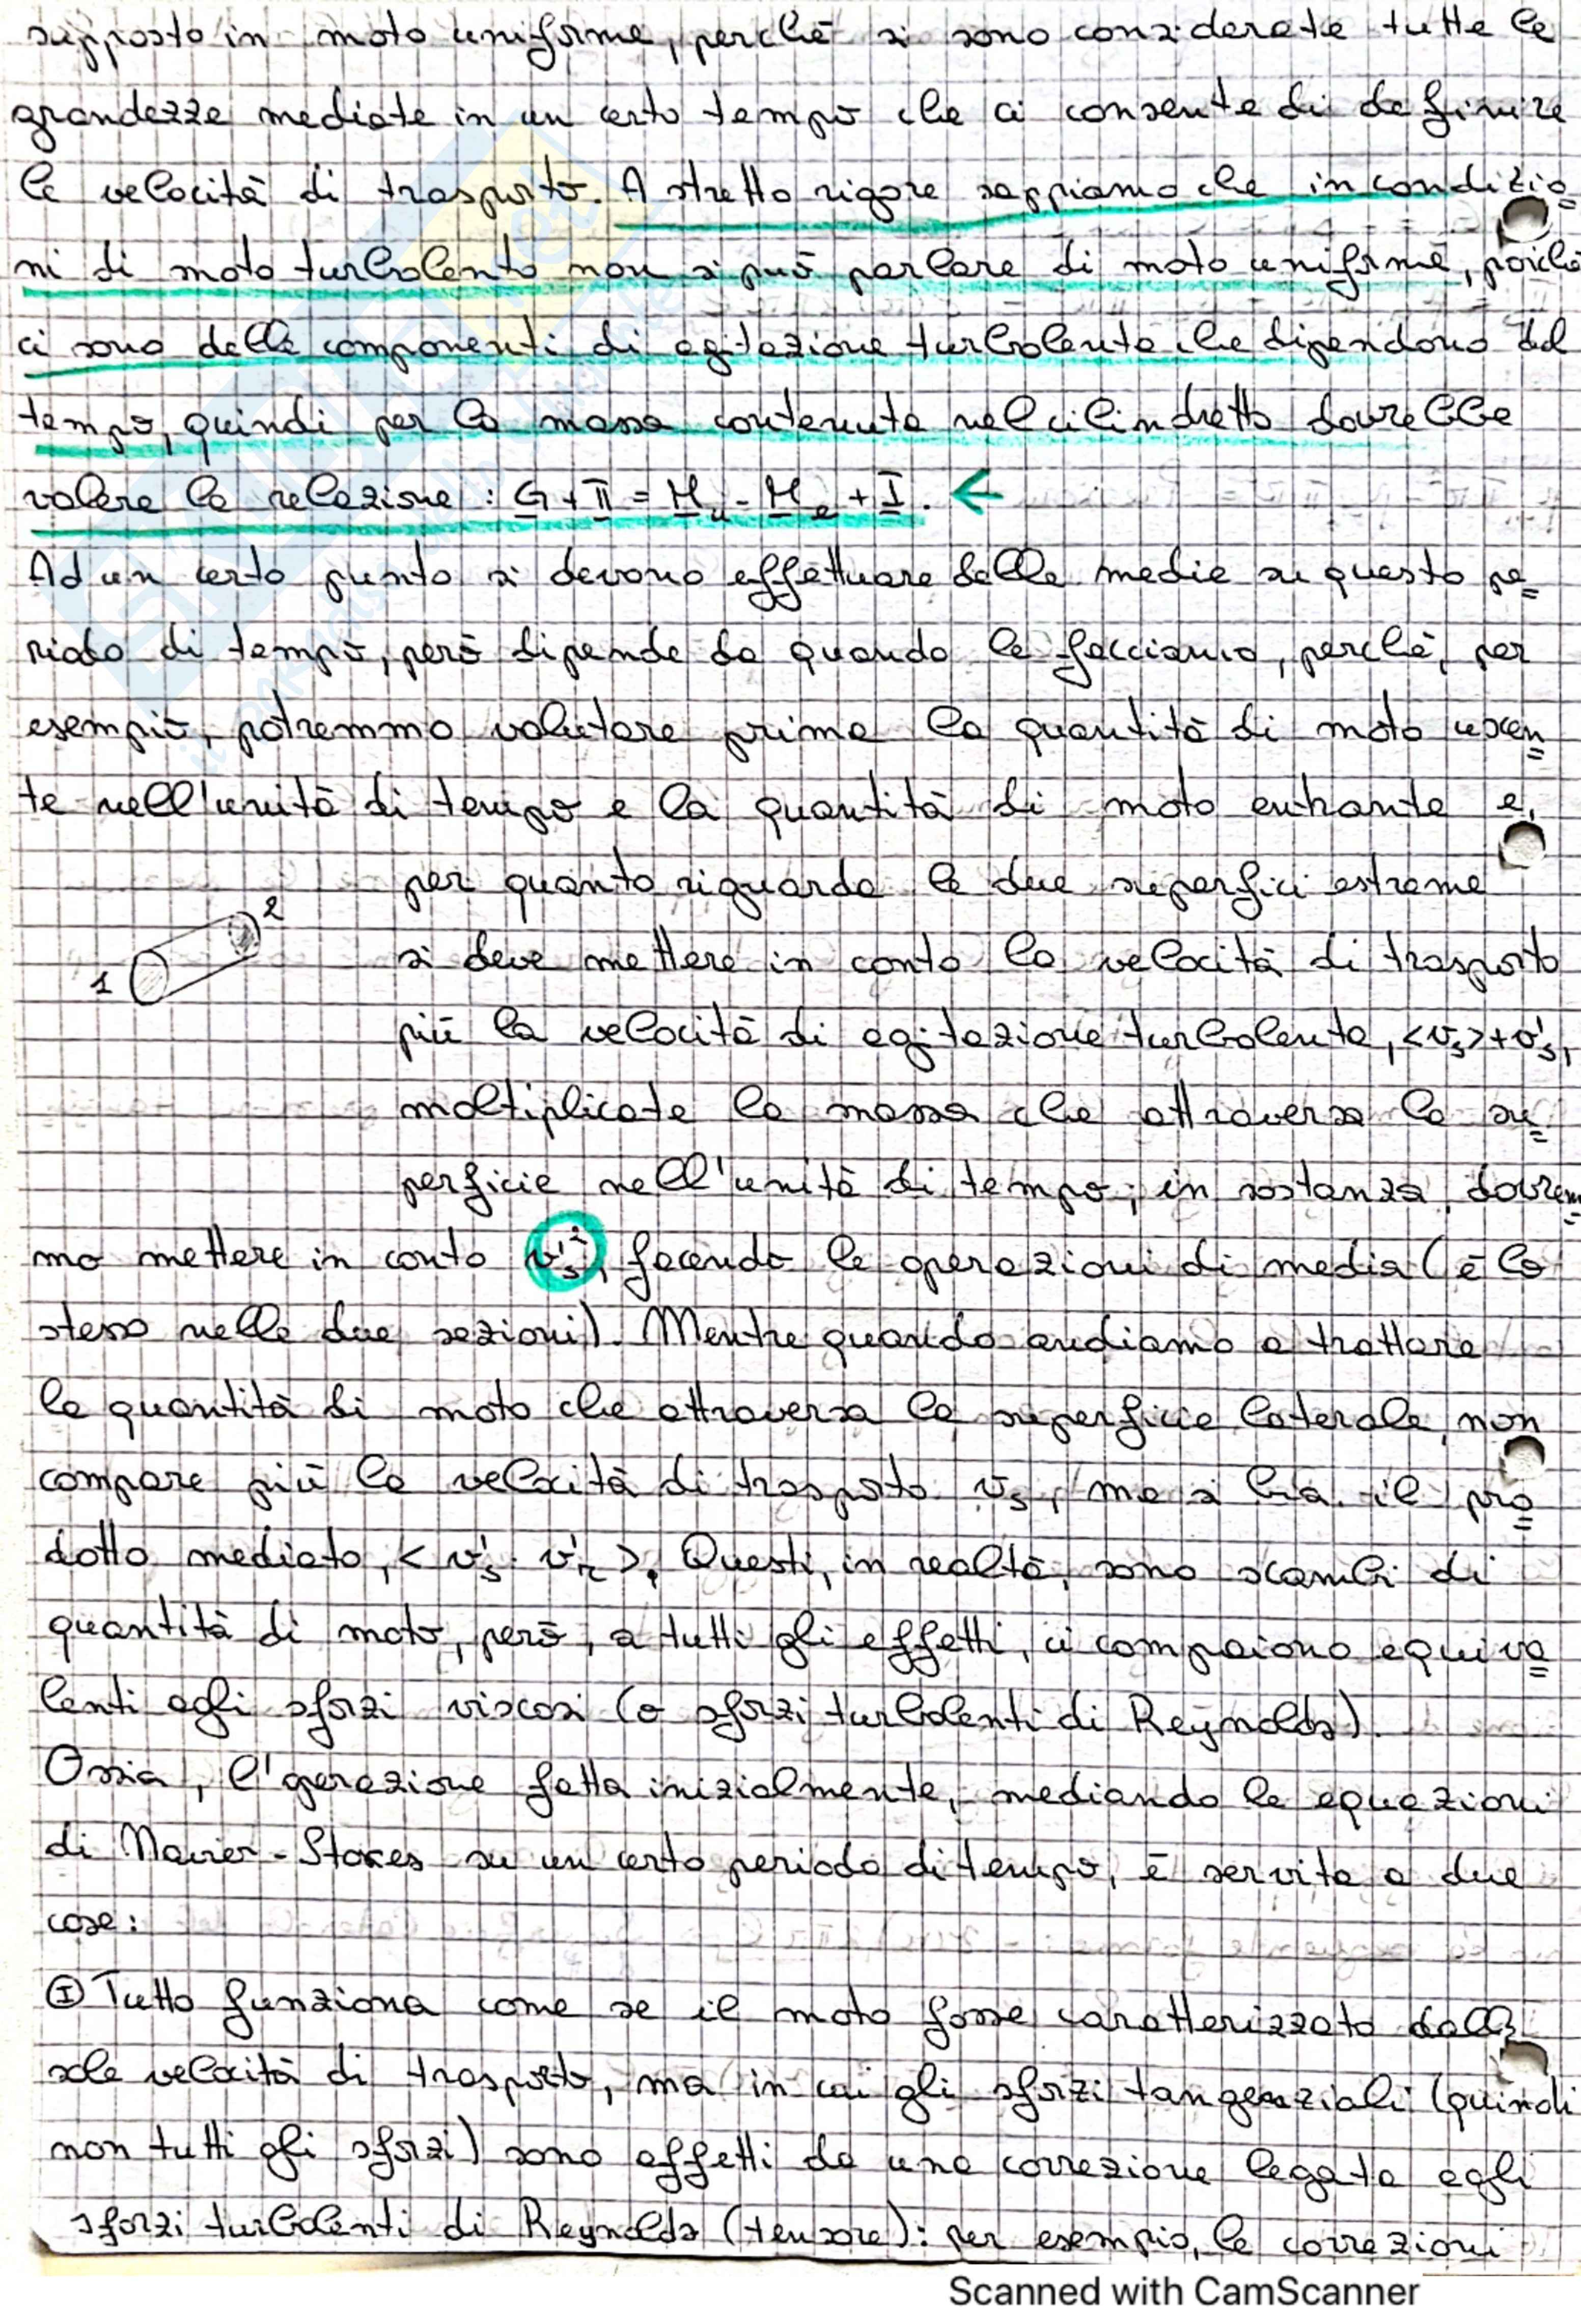 supposto in moto uniforme, perchè si sono considerate tutte le
grandezze mediate in un certo tempo che ci consente di definire
le velocità di trasporto. A stretto rigore sappiamo che in condizio=
ni di moto turbolento non si può parlare di moto uniforme, poichè
ci sono delle componenti di agitazione turbolenta che dipendono dal
tempo, quindi per la massa contenuta nel cilindretto dovrebbe
valere la relazione: G + Π = M_u - M_e + I. ←
Ad un certo punto si devono effettuare delle medie su questo pe=
riodo di tempo, però dipende da quando le facciamo, perchè, per
esempio, potremmo valutare prima la quantità di moto uscen=
te nell'unità di tempo e la quantità di moto entrante e,
per quanto riguarda le due superfici estreme
2
si deve mettere in conto la velocità di trasporto
1
più la velocità di agitazione turbolenta, <v_s>+v'_s,
moltiplicate la massa che attraversa la su=
perficie nell'unità di tempo; in sostanza, dovrem=
mo mettere in conto v'_s², facendo le operazioni di media (è lo
stesso nelle due sezioni). Mentre quando andiamo a trattare
la quantità di moto che attraversa la superficie laterale, non
compare più la velocità di trasporto v_s, ma si ha il pro=
dotto mediato, < v'_s · v'_r >. Questi, in realtà, sono scambi di
quantità di moto, però, a tutti gli effetti, ci compaiono equiva=
lenti agli sforzi viscosi (o sforzi turbolenti di Reynolds).
Ossia, l'operazione fatta inizialmente, mediando le equazioni
di Navier-Stokes su un certo periodo di tempo, è servita a due
cose:
① Tutto funziona come se il moto fosse caratterizzato dalla
sola velocità di trasporto, ma in cui gli sforzi tangenziali (quindi
non tutti gli sforzi) sono affetti da una correzione legata agli
sforzi turbolenti di Reynolds (tensore): per esempio, le correzioni
Scanned with CamScanner